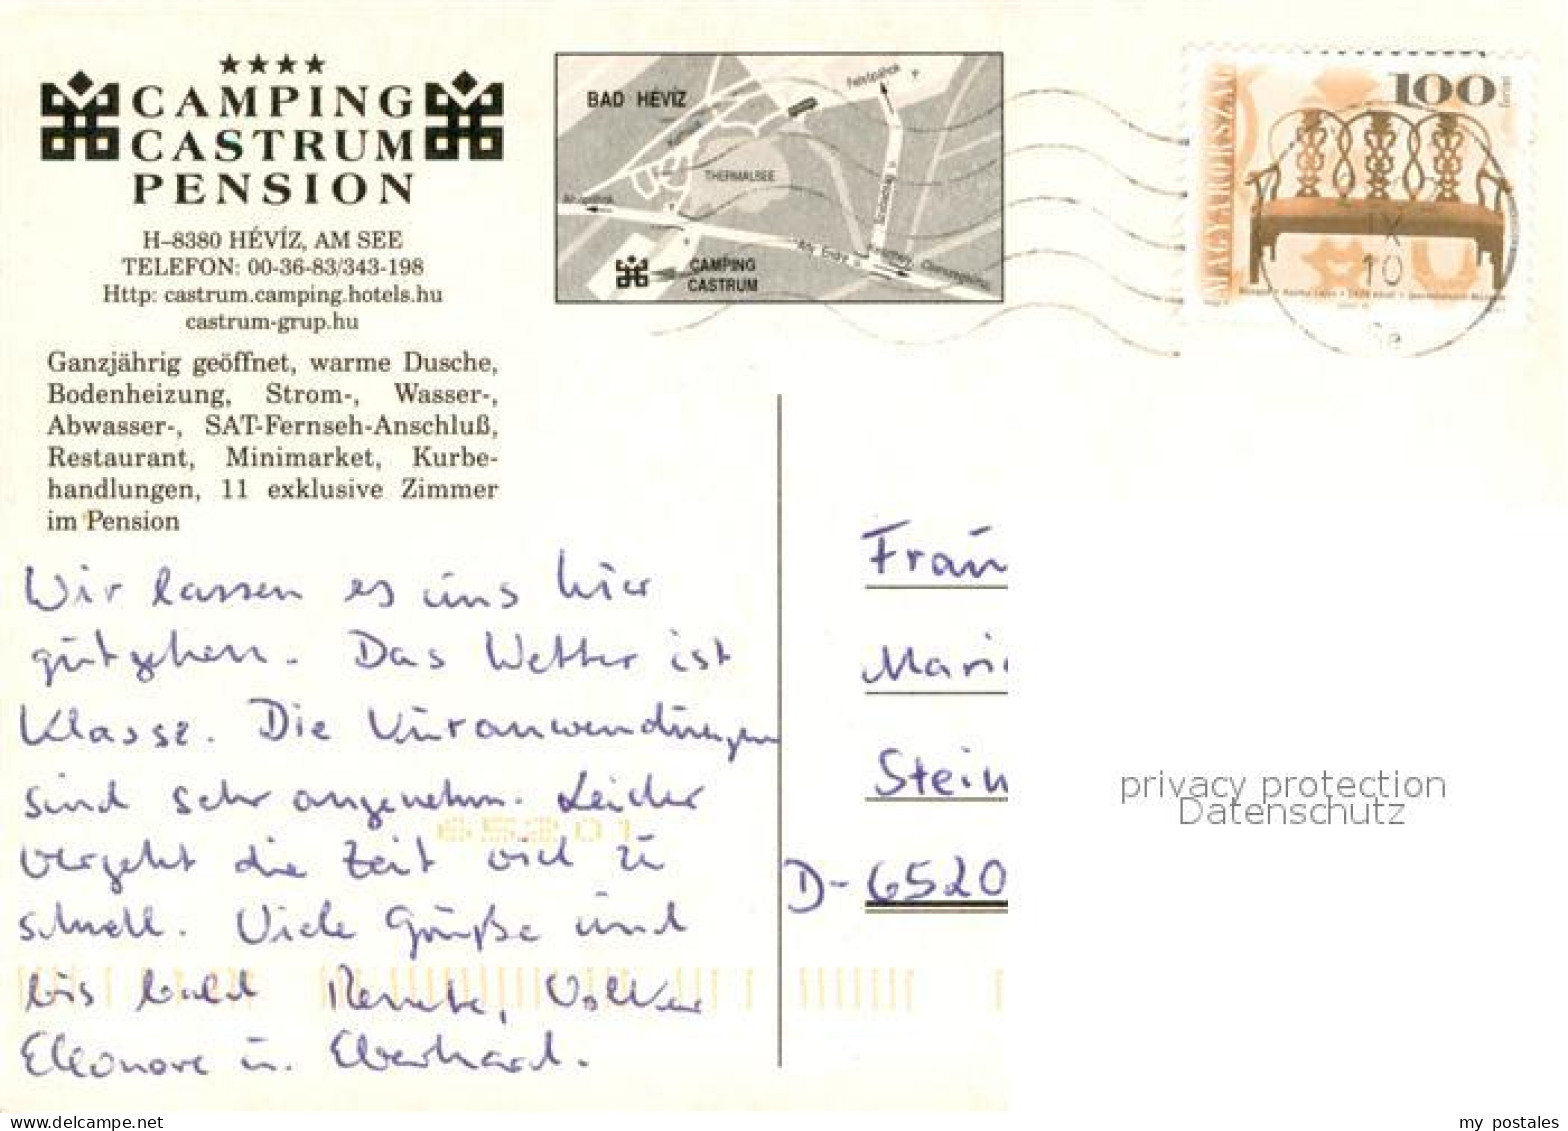 CAMPING
CASTRUM
PENSION
H–8380 HÉVÍZ, AM SEE
TELEFON: 00-36-83/343-198
Http: castrum.camping.hotels.hu
castrum-grup.hu
Ganzjährig geöffnet, warme Dusche,
Bodenheizung, Strom-, Wasser-,
Abwasser-, SAT-Fernseh-Anschluß,
Restaurant, Minimarket, Kurbe-
handlungen, 11 exklusive Zimmer
im Pension
BAD HÉVÍZ
Felsőpáhok
P
THERMALSEE
Ady Endre u.
P
CAMPING
CASTRUM
MAGYARORSZÁG
100
forint
IX
10
Wir lassen es uns hier
gutgehen. Das Wetter ist
Klasse. Die Kuranwendungen
sind sehr angenehm. Leider
vergeht die Zeit viel zu
schnell. Viele Grüße und
bis bald Renate, Volker
Eleonore u. Eberhard.
65201
Frau
Mari
Stein
D-6520
privacy protection
Datenschutz
my postales